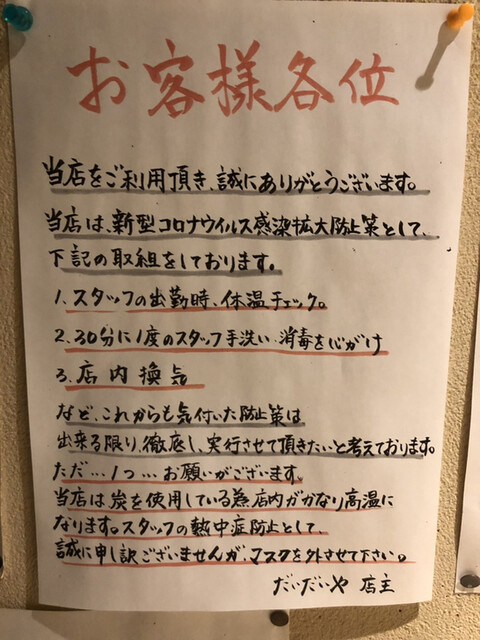 お客様各位
当店をご利用頂き、誠にありがとうございます。
当店は、新型コロナウイルス感染拡大防止策として、
下記の取組をしております。
1.スタッフの出勤時、体温チェック。
2.30分に1度のスタッフ手洗い・消毒を心がけ
3.店内換気
など、これからも気付いた防止策は
出来る限り、徹底し、実行させて頂きたいと考えております。
ただ…1つ…お願いがございます。
当店は炭を使用している為店内がかなり高温に
なります。スタッフの熱中症防止として、
誠に申し訳ございませんが、マスクを外させて下さい。
だいだいや 店主